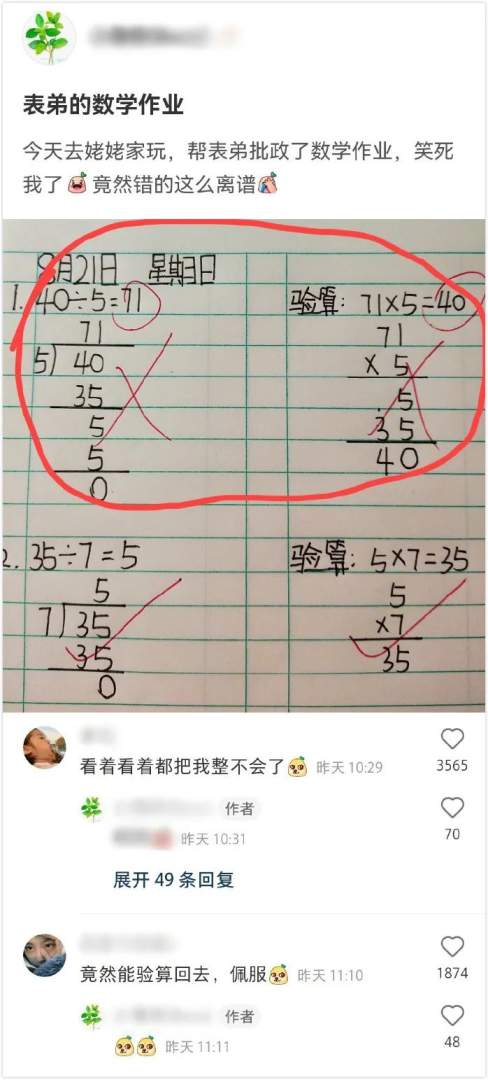 表弟的数学作业
今天去姥姥家玩，帮表弟批政了数学作业，笑死
我了竟然错的这么离谱
8月21日 星期日
1. 40÷5=71
71
5) 40
35
5
5
0
验算: 71×5=40
71
× 5
5
35
40
2. 35÷7=5
5
7) 35
35
0
验算: 5×7=35
5
×7
35
看着看着都把我整不会了 昨天 10:29
3565
作者
昨天 10:31
70
展开 49 条回复
竟然能验算回去，佩服 昨天 11:10
1874
作者
昨天 11:11
48